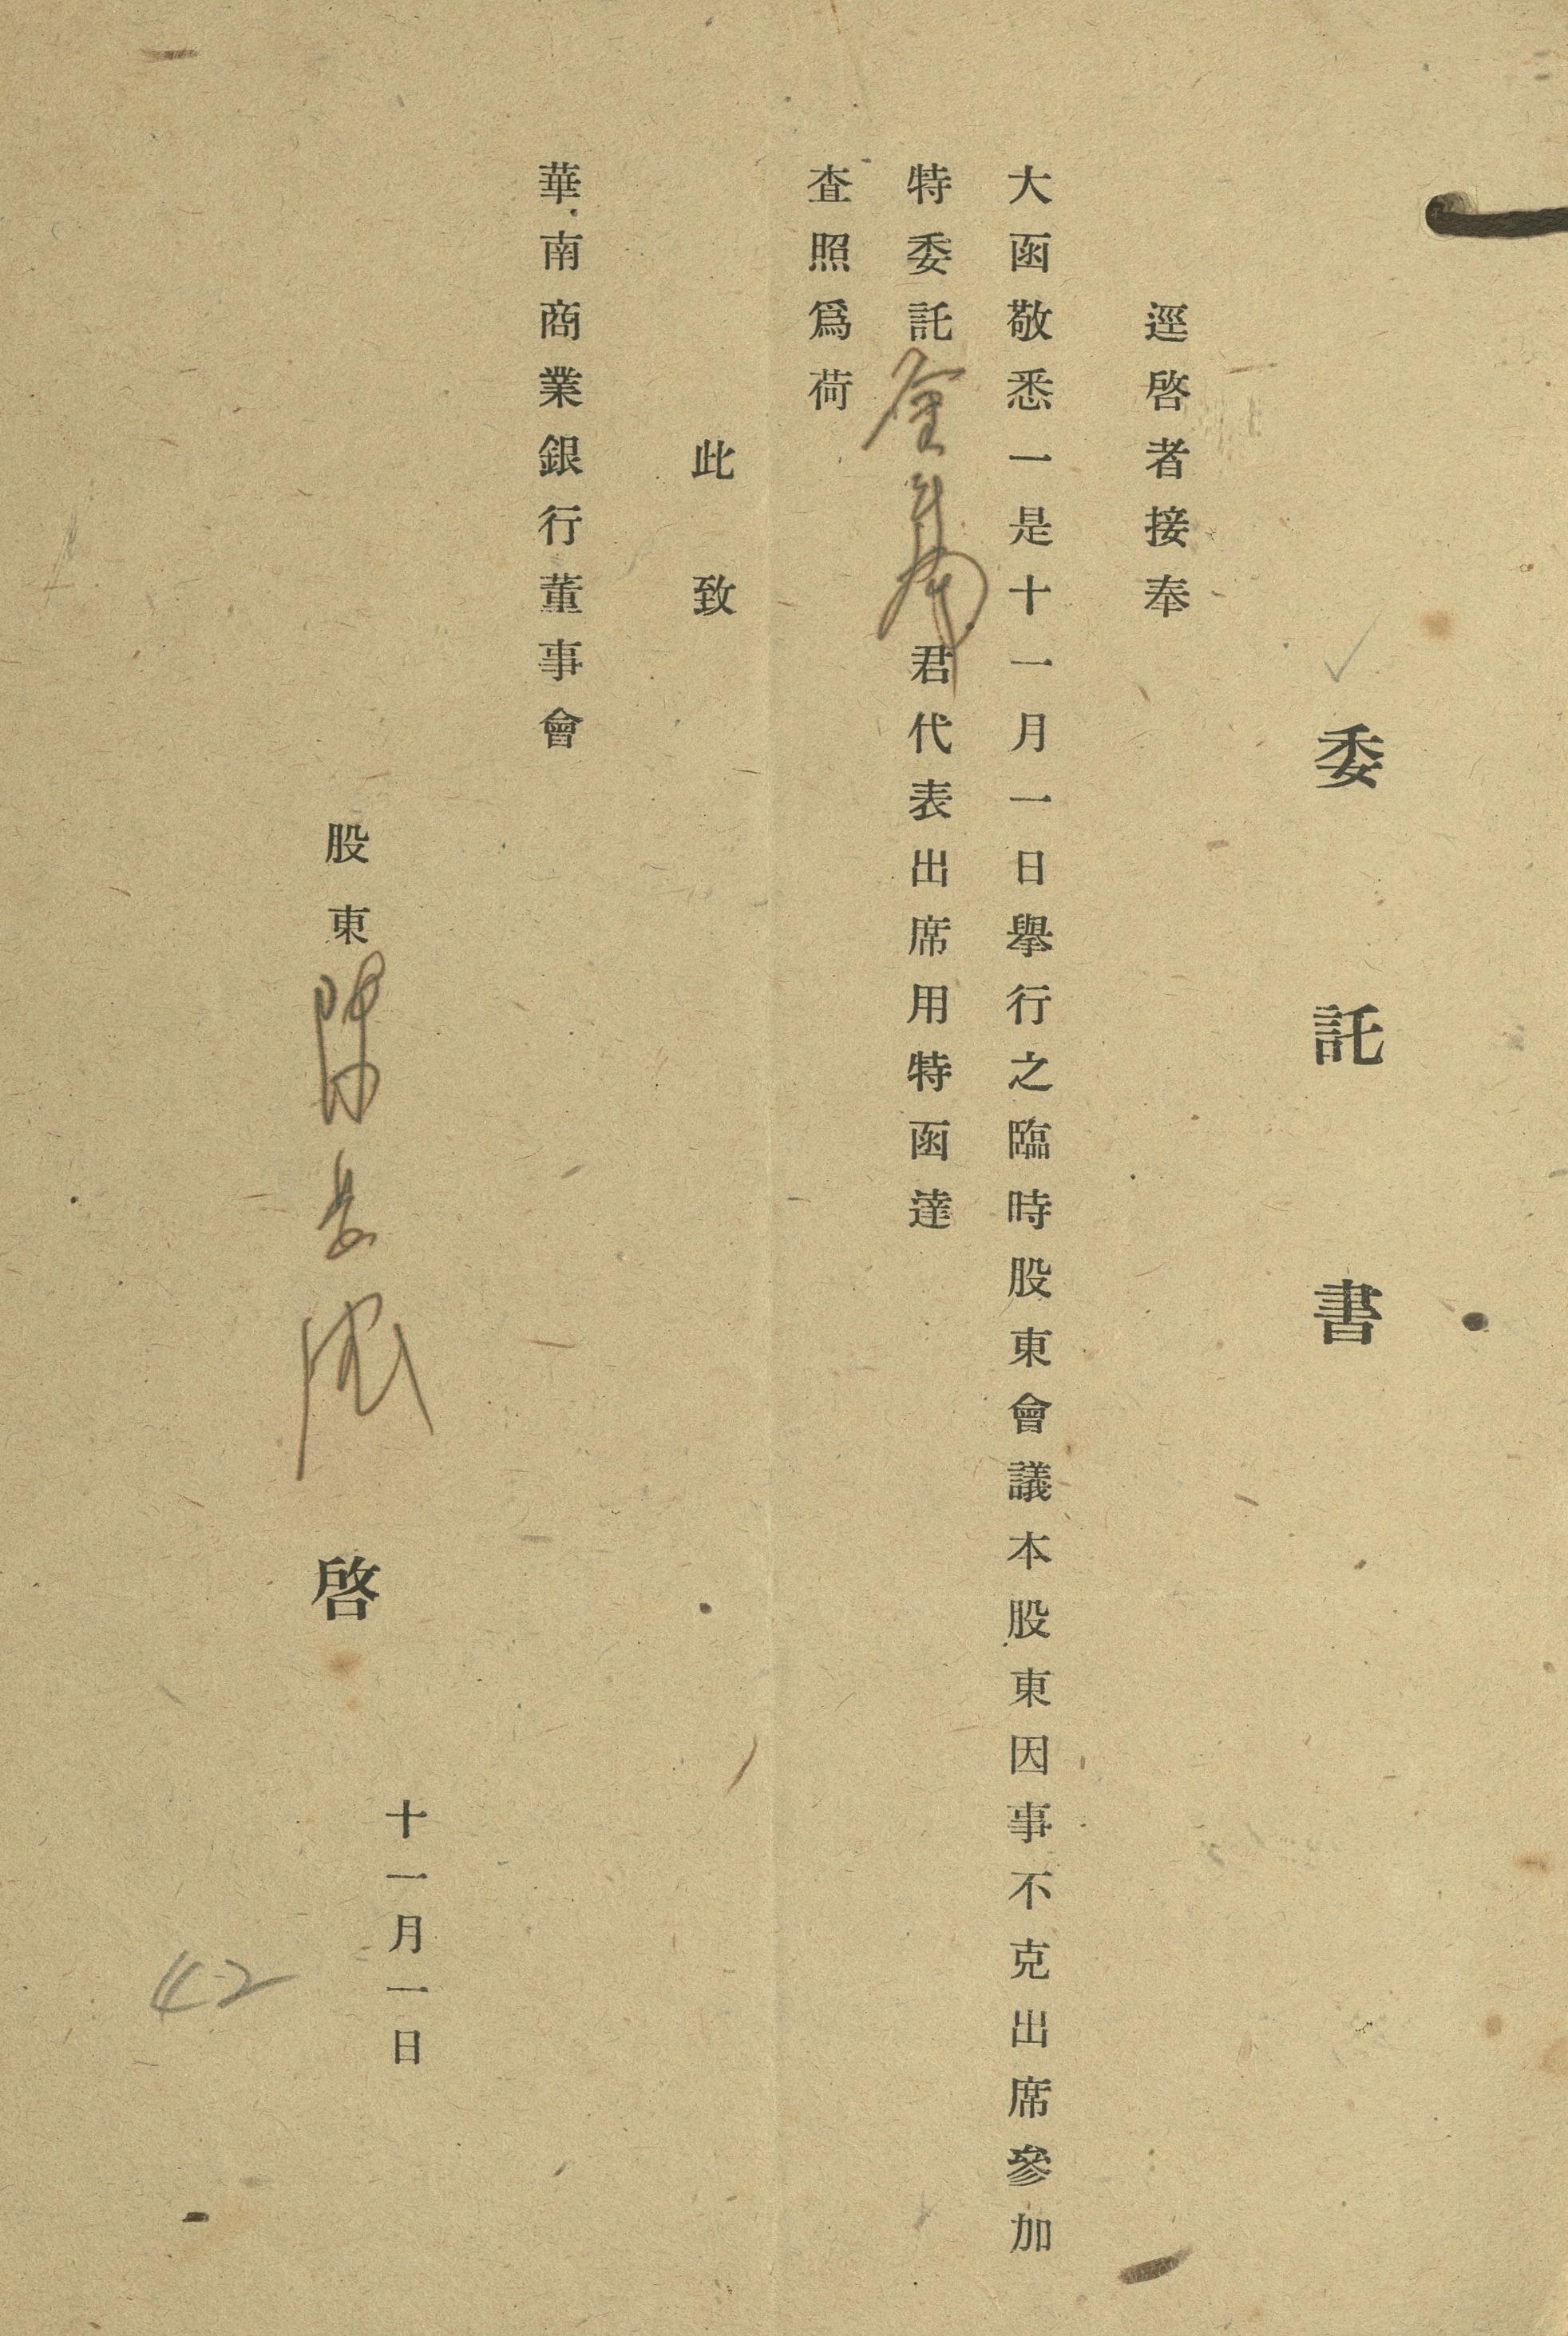 委託書
逕啓者接奉
大函敬悉一是十一月一日舉行之臨時股東會議本股東因事不克出席參加
特委託金 君代表出席用特函達
查照爲荷
此致
華南商業銀行董事會
十一月一日
股東陳 啓
42